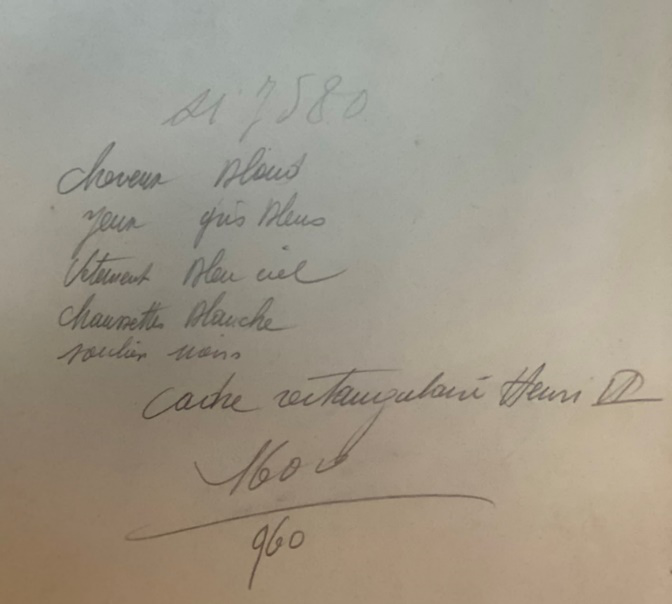 7580
cheveux Blond
yeux gris Bleus
Vetement Bleu ciel
chaussettes Blanche
soulier noirs
Cadre rectangulaire Henri II
960